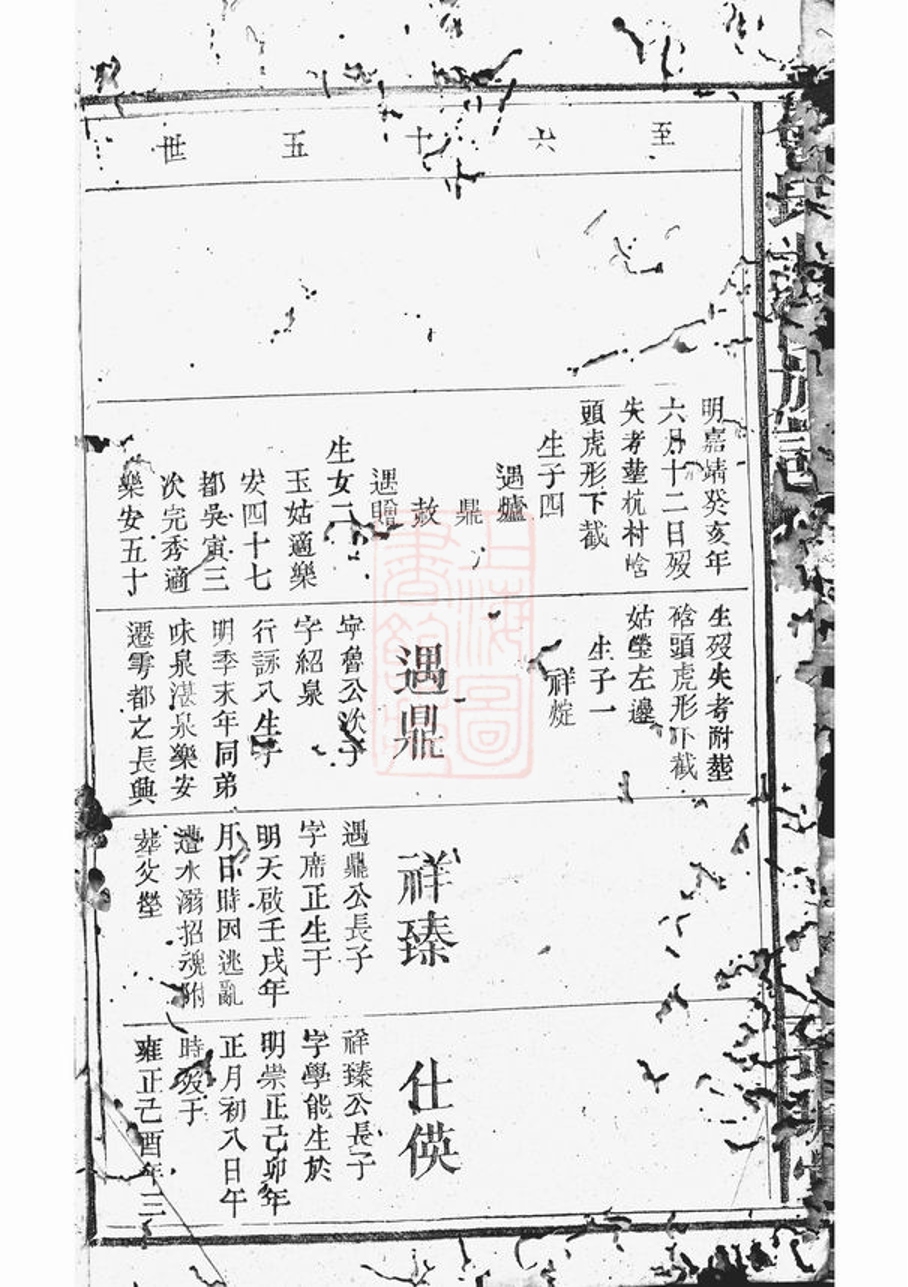 至六十五世
明嘉靖癸亥年
六月十二日歿
失考塟杭村唅
頭虎形下截
生子四
遇爐
鼎
敖
遇贈
生女二
玉姑適樂
安四十七
都吳寅三
次完秀適
樂安五十
生歿失考附塟
硆頭虎形下截
姑塋左邊
生子一
祥熀
遇鼎
寧魯公次子
字紹泉
行詠八生子
明季末年同弟
味泉湛泉樂安
遷雩都之長興
祥臻
遇鼎公長子
字席正生于
明天啟壬戌年
月日時因逃亂
遭水溺招魂附
葬父塋
仕僙
祥臻公長子
字學能生於
明崇正己卯年
正月初八日午
時歿于
雍正己酉年三
上海圖書館藏